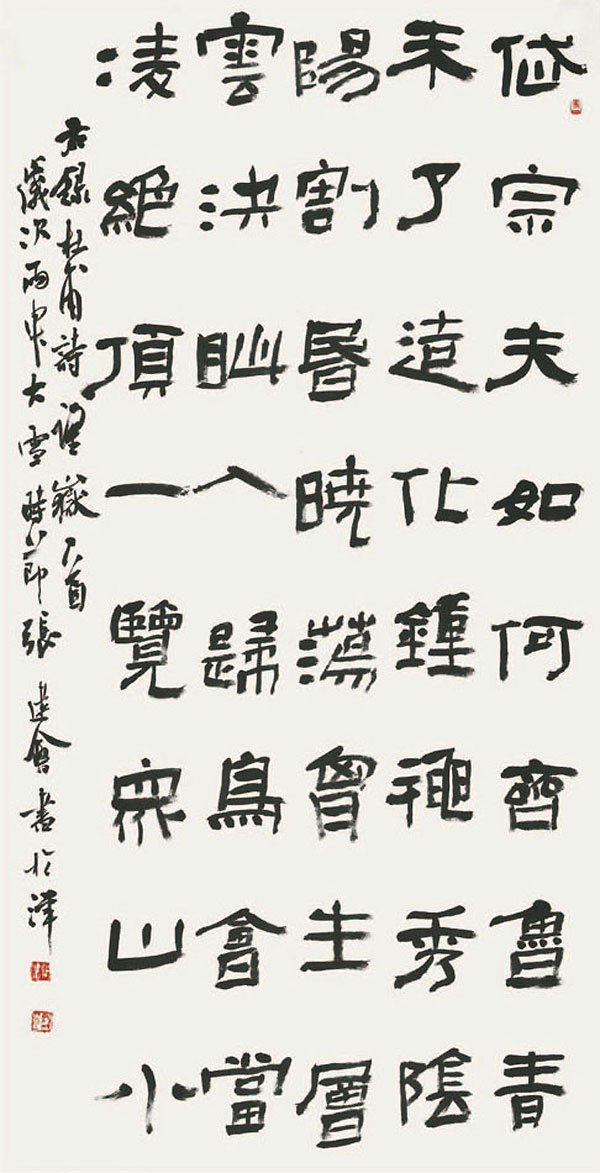 岱宗夫如何齊魯青
未了造化鍾神秀陰
陽割昬曉蕩胷生層
雲決眦入歸鳥會當
凌絕頂一覽眾山小
右錄杜甫詩望嶽一首
歲次丙申大雪時節張建會書於津